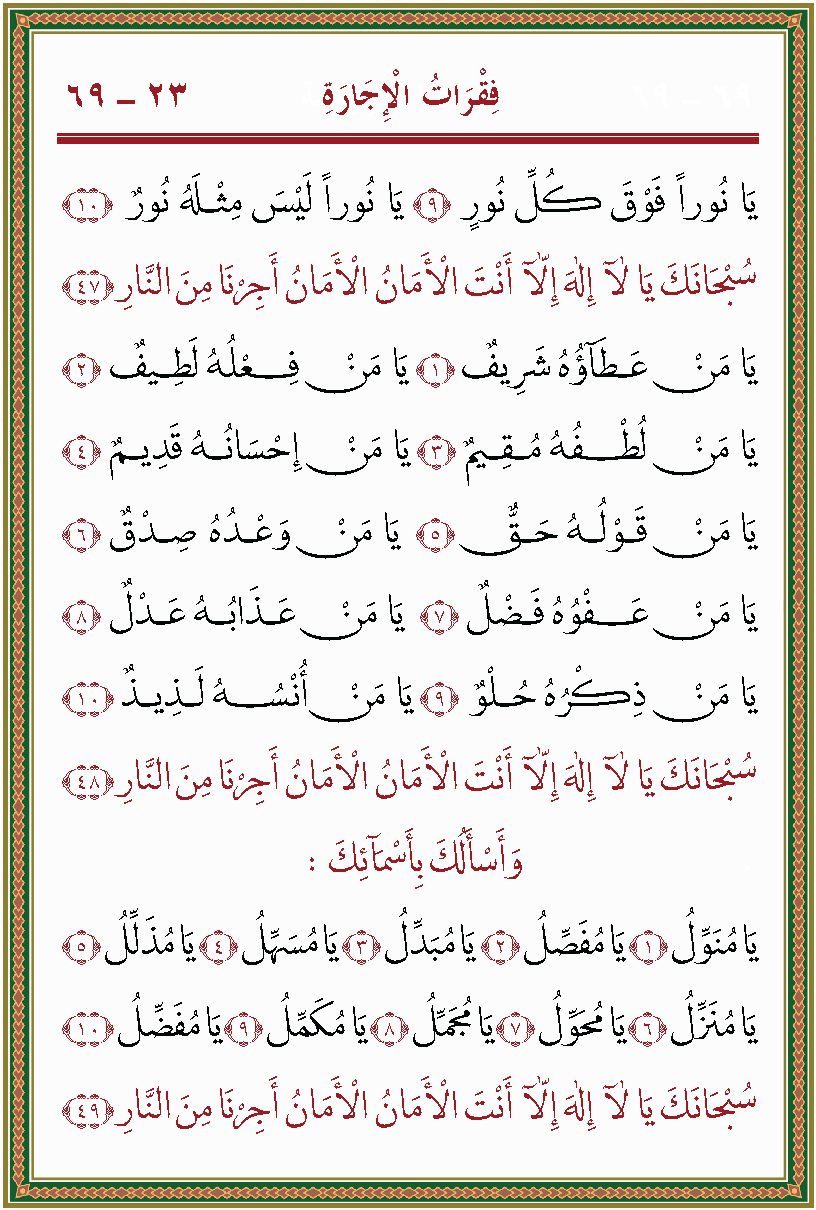 فِقْرَاتُ الْإِجَارَةِ ٢٣ – ٦٩
يَا نُوراً فَوْقَ كُلِّ نُورٍ ﴿٩﴾ يَا نُوراً لَيْسَ مِثْلَهُ نُورٌ ﴿١٠﴾
سُبْحَانَكَ يَا لَٓا إِلٰهَ إِلَّٓا أَنْتَ الْأَمَانُ الْأَمَانُ أَجِرْنَا مِنَ النَّارِ ﴿٤٧﴾
يَا مَنْ عَطَٓاؤُهُ شَرِيفٌ ﴿١﴾ يَا مَنْ فِعْلُهُ لَطِيفٌ ﴿٢﴾
يَا مَنْ لُطْفُهُ مُقِيمٌ ﴿٣﴾ يَا مَنْ إِحْسَانُهُ قَدِيمٌ ﴿٤﴾
يَا مَنْ قَوْلُهُ حَقٌّ ﴿٥﴾ يَا مَنْ وَعْدُهُ صِدْقٌ ﴿٦﴾
يَا مَنْ عَفْوُهُ فَضْلٌ ﴿٧﴾ يَا مَنْ عَذَابُهُ عَدْلٌ ﴿٨﴾
يَا مَنْ ذِكْرُهُ حُلْوٌ ﴿٩﴾ يَا مَنْ أُنْسُهُ لَذِيذٌ ﴿١٠﴾
سُبْحَانَكَ يَا لَٓا إِلٰهَ إِلَّٓا أَنْتَ الْأَمَانُ الْأَمَانُ أَجِرْنَا مِنَ النَّارِ ﴿٤٨﴾
وَأَسْأَلُكَ بِأَسْمَٓائِكَ :
يَا مُنَوِّلُ ﴿١﴾ يَا مُفَصِّلُ ﴿٢﴾ يَا مُبَدِّلُ ﴿٣﴾ يَا مُسَهِّلُ ﴿٤﴾ يَا مُذَلِّلُ ﴿٥﴾
يَا مُنَزِّلُ ﴿٦﴾ يَا مُحَوِّلُ ﴿٧﴾ يَا مُجَمِّلُ ﴿٨﴾ يَا مُكَمِّلُ ﴿٩﴾ يَا مُفَضِّلُ ﴿١٠﴾
سُبْحَانَكَ يَا لَٓا إِلٰهَ إِلَّٓا أَنْتَ الْأَمَانُ الْأَمَانُ أَجِرْنَا مِنَ النَّارِ ﴿٤٩﴾